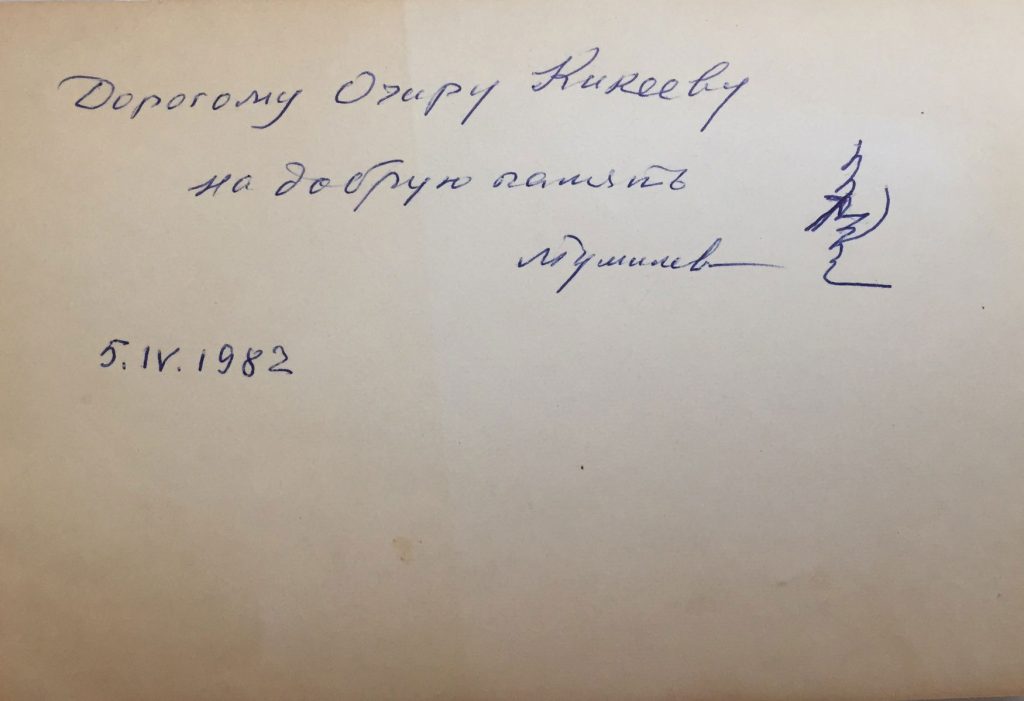 Дорогому Очиру Кикееву
на добрую память
ЛГумилев
5.IV.1982